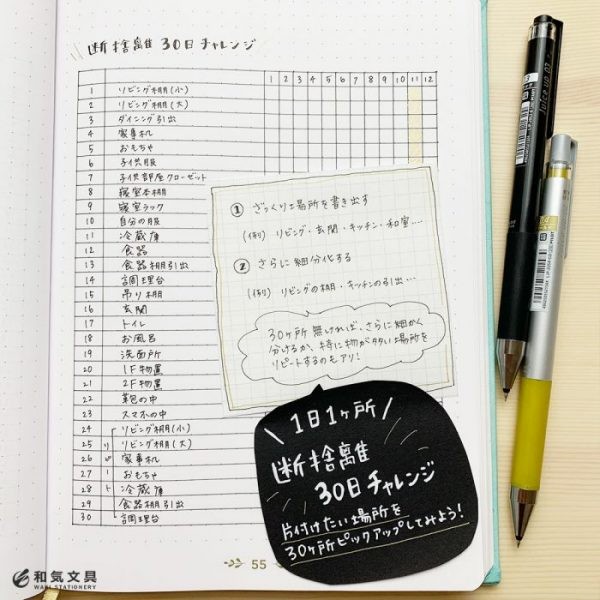 断捨離 30日チャレンジ
1 2 3 4 5 6 7 8 9 10 11 12
1 リビング棚(小)
2 リビング棚(大)
3 ダイニング引出
4 家事机
5 おもちゃ
6 子供服
7 子供部屋クローゼット
8 寝室本棚
9 寝室ラック
10 自分の服
11 冷蔵庫
12 食器
13 食器棚引出
14 調理台
15 吊り棚
16 玄関
17 トイレ
18 お風呂
19 洗面所
20 1F物置
21 2F物置
22 鞄の中
23 スマホの中
24 リビング棚(小)
25 リビング棚(大)
26 家事机
27 おもちゃ
28 冷蔵庫
29 食器棚引出
30 調理台
リピート
① ざっくり場所を書き出す
(例) リビング・玄関・キッチン・和室....
② さらに細分化する
(例) リビングの棚・キッチンの引出....
30ヶ所無ければ、さらに細かく
分けるか、特に物が多い場所を
リピートするのもアリ!
1日1ヶ所
断捨離
30日チャレンジ
片付けたい場所を
30ヶ所ピックアップしてみよう!
55
和気文具
WAKI STATIONERY